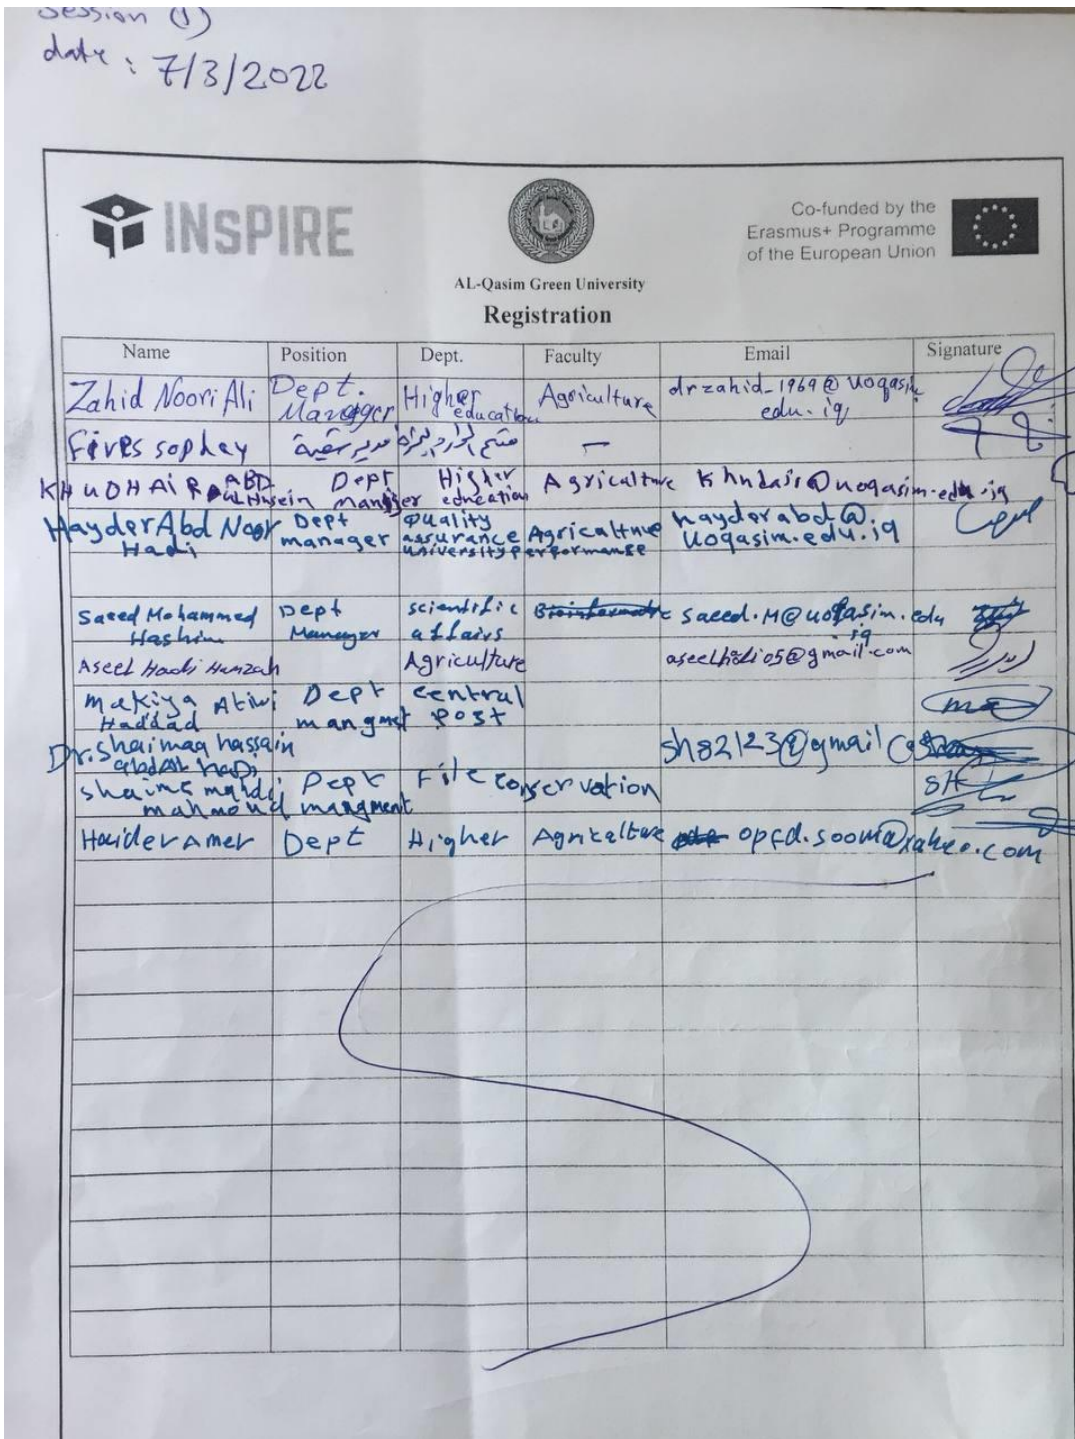 session (1)
date : 7/3/2022
INSPIRE
Co-funded by the
Erasmus+ Programme
of the European Union
AL-Qasim Green University
Registration
Name Position Dept. Faculty Email Signature
Zahid Noori Ali Dept. Manager Higher education Agriculture drzahid_1969@uoqasim edu.iq
Fires sophey مدير شعبة —
KHUDHAIR ABD ULHusein Dept manager Higher education Agricalture Khudair@uoqasim.edu.iq
Hayder Abd Noor Hadi Dept manager quality assurance university performanse Agricalture hayderabd@ uoqasim.edu.iq
Saeed Mohammed Hashim Dept Manager scientific affairs saeed.M@uoqasim.edu .iq
Aseel Hadi Hamzah Agriculture @gmail.com
Makiya Atiwi Haddad Dept mangmet central post
Dr. shaimaa hassain abdAl hadi sh82123@gmail
shaima mahdi mahmoud Dept mangment File conservation SH
Haider Amer Dept Higher Agricalture opfd.soom@yahoo.com